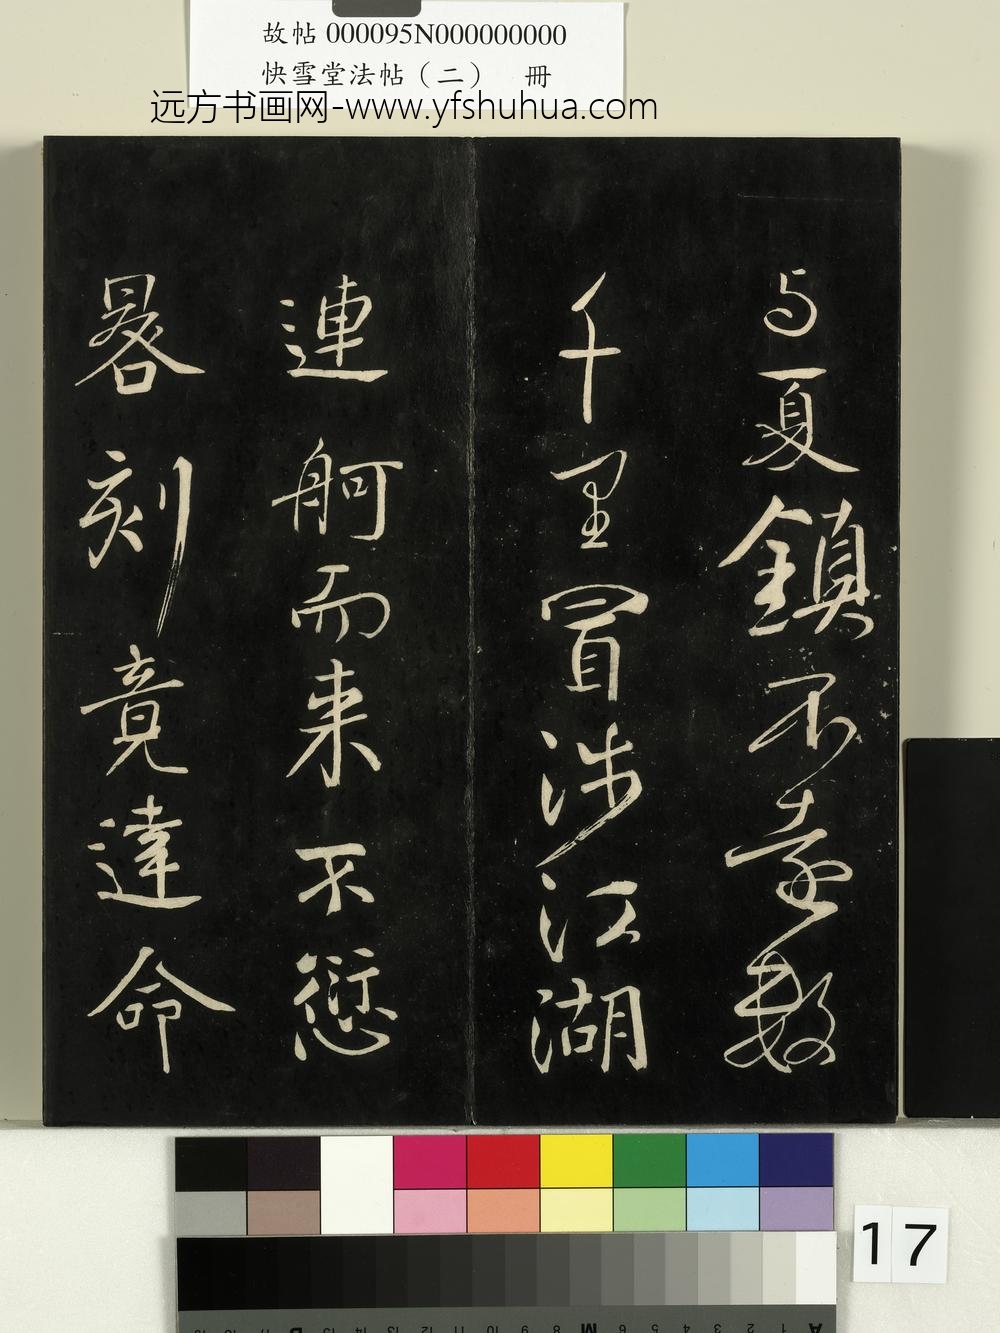 故帖 000095N000000000
快雪堂法帖（二） 冊
远方书画网-www.yfshuhua.com
与夏鎮不遠數
千里冒涉江湖
連舸而来不愆
晷刻竟達命
17